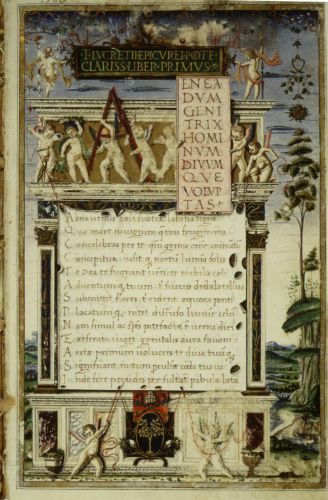 T·LVCRETII·EPICVREI·POETE
CLARISS·LIBER·PRIMVS
A
ENEA
DVM
GENI
TRIX
HOMI
NVM
DIVVM
QVE
VOLVP
TAS
Alma uenus cæli subter labētia signa
Quæ mare nauigerum q̄ terras frugiferētis
Concelebras per te qm̄ genus omē animātū
Concipitur: uisitq; exortū lumina solis
Te dea te fugiunt uēti: te nubila cæli
Aduentumq; tuum: t̄ suauis dedala tellus
Submittit flores: t̄ rident æquora ponti
Placatumq; nitet diffuso lumīe cælū
Nam simul ac spēs patefacta ē uerna diei
Et reserata uiget genitalis aura fauoni
Aeriæ primum uolucres te diua tuūq;
Significant initum pculsæ corda tua ui
Inde feræ pecudes psultāt pabula læta